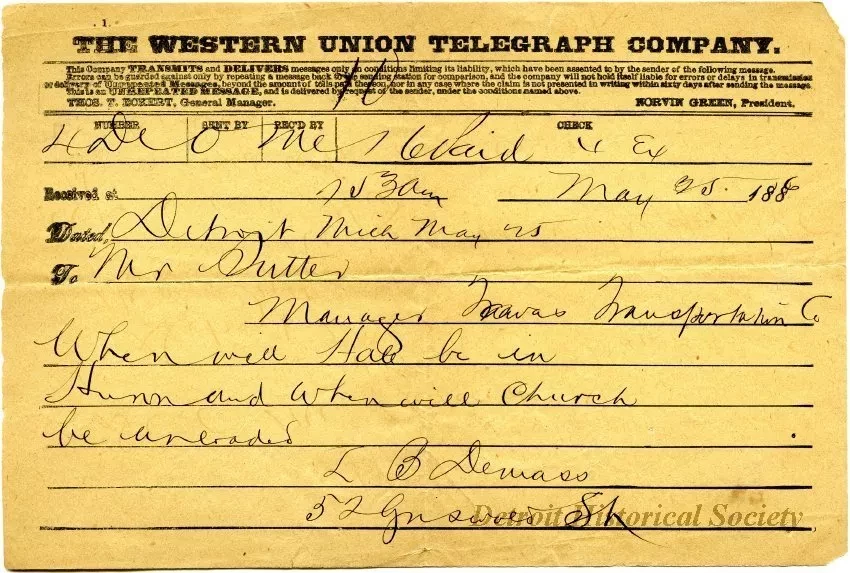 . 1.
THE WESTERN UNION TELEGRAPH COMPANY.
This Company TRANSMITS and DELIVERS messages only on conditions limiting its liability, which have been assented to by the sender of the following message.
Errors can be guarded against only by repeating a message back to the sending station for comparison, and the company will not hold itself liable for errors or delays in transmission
or delivery of Unrepeated Messages, beyond the amount of tolls paid thereon, nor in any case where the claim is not presented in writing within sixty days after sending the message.
This is an UNREPEATED MESSAGE and is delivered by request of the sender, under the conditions named above.
THOS. T. ECKERT, General Manager. NORVIN GREEN, President.
NUMBER SENT BY REC'D BY CHECK
4 De O Mc 16 Paid 4 Ex
Received at 753am May 25. 188
Dated, Detroit Mich May 25
To Mr Sutter
Manager Transportation Co
When will Hale be in
Huron and when will Church
be unloaded
L B Demass
52 Griswold St
Detroit Historical Society